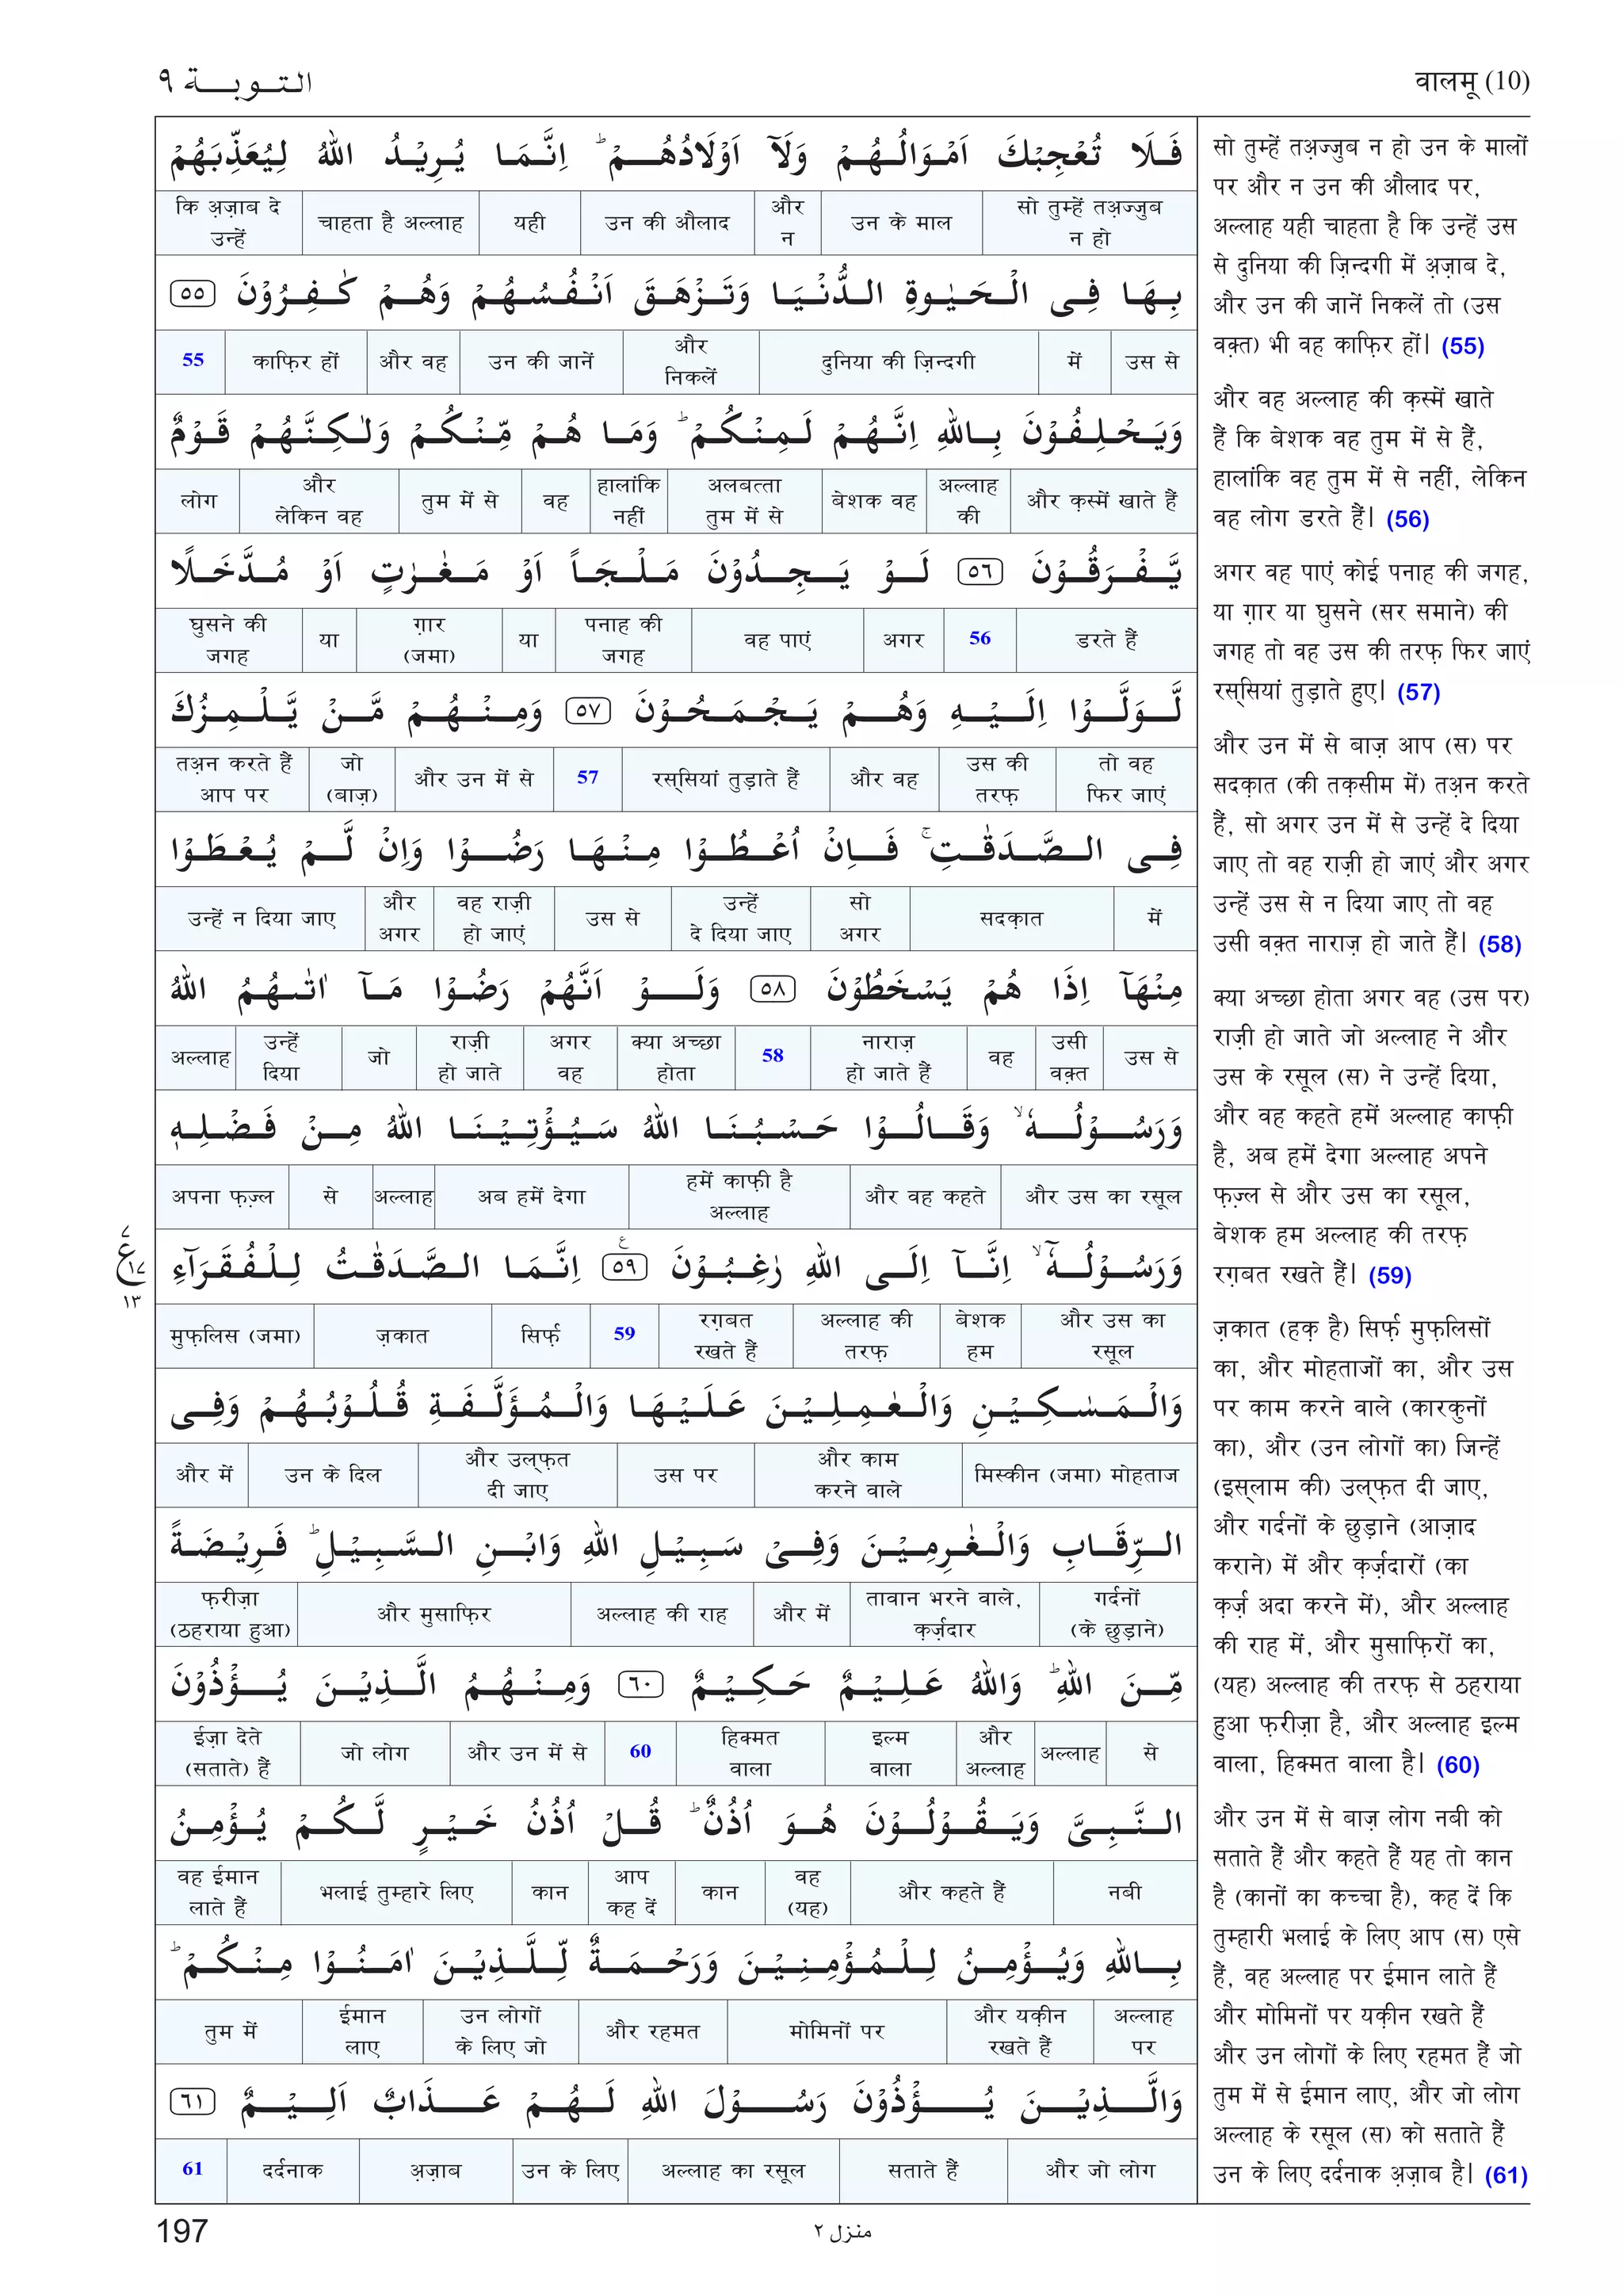 التوبة ٩
वालमू (10)
فَلَا تُعْجِبْكَ اَمْوَالُهُمْ وَلَآ اَوْلَادُهُمْ ؕ اِنَّمَا يُرِيْدُ اللّٰهُ لِيُعَذِّبَهُمْ
सो तुम्हें तअ़ज्जुब न हो | उन के माल | और न | उन की औलाद | यही | चाहता है अल्लाह | कि अ़ज़ाब दे उन्हें
بِهَا فِى الْحَيٰوةِ الدُّنْيَا وَتَزْهَقَ اَنْفُسُهُمْ وَهُمْ كٰفِرُوْنَ ٥٥
उस से | में | दुनिया की ज़िन्दगी | और निकलें | उन की जानें | और वह | काफ़िर हों | 55
وَيَحْلِفُوْنَ بِاللّٰهِ اِنَّهُمْ لَمِنْكُمْ ؕ وَمَا هُمْ مِّنْكُمْ وَلٰكِنَّهُمْ قَوْمٌ
और क़स्में खाते हैं | अल्लाह की | बेशक वह | अलबत्ता तुम में से | हालांकि नहीं | वह | तुम में से | और लेकिन वह | लोग
يَّفْرَقُوْنَ ٥٦ لَوْ يَجِدُوْنَ مَلْجَاً اَوْ مَغٰرٰتٍ اَوْ مُدَّخَلًا
डरते हैं | 56 | अगर | वह पाएं | पनाह की जगह | या | ग़ार (जमा) | या | घुसने की जगह
لَّوَلَّوْا اِلَيْهِ وَهُمْ يَجْمَحُوْنَ ٥٧ وَمِنْهُمْ مَّنْ يَّلْمِزُكَ
तो वह फिर जाएं | उस की तरफ़ | और वह | रस्सियां तुड़ाते हैं | 57 | और उन में से | जो (बाज़) | तअ़न करते हैं आप पर
فِى الصَّدَقٰتِ ۚ فَاِنْ اُعْطُوْا مِنْهَا رَضُوْا وَاِنْ لَّمْ يُعْطَوْا
में | सदक़ात | सो अगर | उन्हें दे दिया जाए | उस से | वह राज़ी हो जाएं | और अगर | उन्हें न दिया जाए
مِنْهَآ اِذَا هُمْ يَسْخَطُوْنَ ٥٨ وَلَوْ اَنَّهُمْ رَضُوْا مَآ اٰتٰىهُمُ اللّٰهُ
उस से | उसी वक़्त | वह | नाराज़ हो जाते हैं | 58 | क्या अच्छा होता | अगर वह | राज़ी हो जाते | जो | उन्हें दिया | अल्लाह
وَرَسُوْلُهٗ ۙ وَقَالُوْا حَسْبُنَا اللّٰهُ سَيُؤْتِيْنَا اللّٰهُ مِنْ فَضْلِهٖ
और उस का रसूल | और वह कहते | हमें काफ़ी है अल्लाह | अब हमें देगा | अल्लाह | से | अपना फ़ज़्ल
وَرَسُوْلُهٗٓ ۙ اِنَّآ اِلَى اللّٰهِ رٰغِبُوْنَ ٥٩ اِنَّمَا الصَّدَقٰتُ لِلْفُقَرَآءِ
और उस का रसूल | बेशक हम | अल्लाह की तरफ़ | रग़बत रखते हैं | 59 | सिर्फ़ | ज़कात | मुफ़लिस (जमा)
٧ ع ١٧ ١٣
وَالْمَسٰكِيْنِ وَالْعٰمِلِيْنَ عَلَيْهَا وَالْمُؤَلَّفَةِ قُلُوْبُهُمْ وَفِى
मिस्कीन (जमा) मोहताज | और काम करने वाले | उस पर | और उल्फ़त दी जाए | उन के दिल | और में
الرِّقَابِ وَالْغٰرِمِيْنَ وَفِىْ سَبِيْلِ اللّٰهِ وَابْنِ السَّبِيْلِ ؕ فَرِيْضَةً
गर्दनों (के छुड़ाने) | तावान भरने वाले, क़र्ज़दार | और में | अल्लाह की राह | और मुसाफ़िर | फ़रीज़ा (ठहराया हुआ)
مِّنَ اللّٰهِ ؕ وَاللّٰهُ عَلِيْمٌ حَكِيْمٌ ٦٠ وَمِنْهُمُ الَّذِيْنَ يُؤْذُوْنَ
से | अल्लाह | और अल्लाह | इल्म वाला | हिक्मत वाला | 60 | और उन में से | जो लोग | ईज़ा देते (सताते) हैं
النَّبِىَّ وَيَقُوْلُوْنَ هُوَ اُذُنٌ ؕ قُلْ اُذُنُ خَيْرٍ لَّكُمْ يُؤْمِنُ
नबी | और कहते हैं | वह (यह) | कान | आप कह दें | कान | भलाई तुम्हारे लिए | वह ईमान लाते हैं
بِاللّٰهِ وَيُؤْمِنُ لِلْمُؤْمِنِيْنَ وَرَحْمَةٌ لِّلَّذِيْنَ اٰمَنُوْا مِنْكُمْ ؕ
अल्लाह पर | और यक़ीन रखते हैं | मोमिनों पर | और रहमत | उन लोगों के लिए जो | ईमान लाए | तुम में
وَالَّذِيْنَ يُؤْذُوْنَ رَسُوْلَ اللّٰهِ لَهُمْ عَذَابٌ اَلِيْمٌ ٦١
और जो लोग | सताते हैं | अल्लाह का रसूल | उन के लिए | अ़ज़ाब | दर्दनाक | 61
सो तुम्हें तअ़ज्जुब न हो उन के मालों
पर और न उन की औलाद पर,
अल्लाह यही चाहता है कि उन्हें उस
से दुनिया की ज़िन्दगी में अ़ज़ाब दे,
और उन की जानें निकलें तो (उस
वक़्त) भी वह काफ़िर हों| (55)
और वह अल्लाह की क़स्में खाते
हैं कि बेशक वह तुम में से हैं,
हालांकि वह तुम में से नहीं, लेकिन
वह लोग डरते हैं| (56)
अगर वह पाएं कोई पनाह की जगह,
या ग़ार या घुसने (सर समाने) की
जगह तो वह उस की तरफ़ फिर जाएं
रस्सियां तुड़ाते हुए| (57)
और उन में से बाज़ आप (स) पर
सदक़ात (की तक़सीम में) तअ़न करते
हैं, सो अगर उन में से उन्हें दे दिया
जाए तो वह राज़ी हो जाएं और अगर
उन्हें उस से न दिया जाए तो वह
उसी वक़्त नाराज़ हो जाते हैं| (58)
क्या अच्छा होता अगर वह (उस पर)
राज़ी हो जाते जो अल्लाह ने और
उस के रसूल (स) ने उन्हें दिया,
और वह कहते हमें अल्लाह काफ़ी
है, अब हमें देगा अल्लाह अपने
फ़ज़्ल से और उस का रसूल,
बेशक हम अल्लाह की तरफ़
रग़बत रखते हैं| (59)
ज़कात (हक़ है) सिर्फ़ मुफ़लिसों
का, और मोहताजों का, और उस
पर काम करने वाले (कारकुनों
का), और (उन लोगों का) जिन्हें
(इस्लाम की) उल्फ़त दी जाए,
और गर्दनों के छुड़ाने (आज़ाद
कराने) में और क़र्ज़दारों (का
क़र्ज़ अदा करने में), और अल्लाह
की राह में, और मुसाफ़िरों का,
(यह) अल्लाह की तरफ़ से ठहराया
हुआ फ़रीज़ा है, और अल्लाह इल्म
वाला, हिक्मत वाला है| (60)
और उन में से बाज़ लोग नबी को
सताते हैं और कहते हैं यह तो कान
है (कानों का कच्चा है), कह दें कि
तुम्हारी भलाई के लिए आप (स) एसे
हैं, वह अल्लाह पर ईमान लाते हैं
और मोमिनों पर यक़ीन रखते हैं
और उन लोगों के लिए रहमत हैं जो
तुम में से ईमान लाए, और जो लोग
अल्लाह के रसूल (स) को सताते हैं
उन के लिए दर्दनाक अ़ज़ाब है| (61)
197
منزل ٢